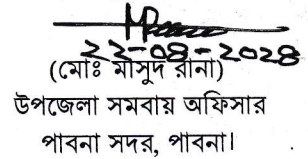 ২২-০৪-২০২৪
(মোঃ মাসুদ রানা)
উপজেলা সমবায় অফিসার
পাবনা সদর, পাবনা।